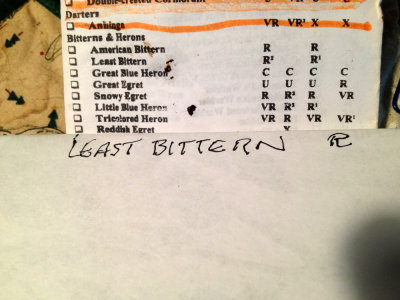 Double-crested Cormorant
Darters
Anhinga VR VR¹ X X
Bitterns & Herons
American Bittern R R
Least Bittern R² R¹
Great Blue Heron C C C C
Great Egret U U U R
Snowy Egret R R² R VR
Little Blue Heron VR R² R¹
Tricolored Heron VR R VR VR¹
Reddish Egret X
LEAST BITTERN R